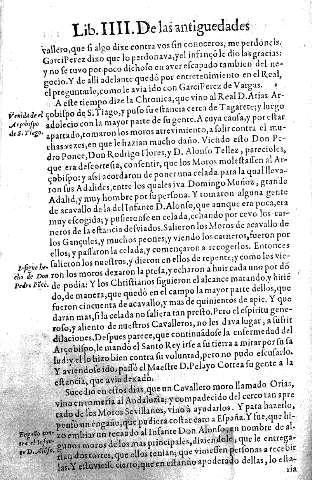 Lib. IIII. De las antiguedades
vallero, que si algo dixe contra vos sin conoceros, me perdoneis.
Garci Perez dixo que lo perdonava, y el infançõ le dio las gracias:
y no se tuvo por poco dichoso en aver escapado tambien del ne-
gocio. Y de alli adelante quedò por entretenimiento en el Real,
el preguntarle, como le avia ido con Garci Perez de Vargas.
A este tiempo dize la Chronica, que vino al Real D. Arias Ar-
çobispo de S. Tiago, y puso su estancia cerca de Tagarete; y luego
adolecio con la mayor parte de su gente. A cuya causa, y por estar
apartado, tomaron los moros atrevimiento, a salir contra el mu-
chas vezes, en que le hazian mucho daño. Viendo esto Don Pe-
dro Ponce, Don Rodrigo Flores, y D. Alonso Tellez, parecioles,
que era descortesia, consentir, que los Moros molestassen al Ar-
çobispo: y assi acordaron de poner una celada, para la qual lleva-
ron sus Adalides, entre los quales iva Domingo Muñoz, grande
Adalid, y muy hombre por su persona. Y tomaron alguna gente
de acavallo de la del Infante D. Alonso, que aunque era poca, era
muy escogida; y pusieronse en celada, echando por cevo los car-
neros de la estancia desviados. Salieron los Moros de acavallo de
los Gançules, y muchos peones, y viendo los carneros, fueron por
ellos, y passaron la celada, y començaron a recogerlos. Entonces
salieron los nuestros, y dieron en ellos de repente; y como los vie-
ron los moros dexaron la presa, y echaron a huir cada uno por dõ
de podia: Y los Christianos siguieron el alcance matando, y hiriē
do, de manera, que quedò en el campo la mayor parte dellos, que
fueron cincuenta de acavallo, y mas de quinientos de apie. Y que
daran mas, si la celada no saliera tan presto. Pero el espiritu gene-
roso, y aliento de nuestros Cavalleros, no les dava lugar, a sufrir
dilaciones. Despues parece, que continuãdose la enfermedad del
Arçobispo, le mandò el Santo Rey irse a su tierra a mirar por su sa
lud; y el lo hizo bien contra su voluntad, pero no pudo escusarlo.
Y aviendose ido, passò el Maestre D. Pelayo Correa su gente a la
estãncia, que avia dexado.
Sucedio en estos dias, que un Cavallero moro llamado Orias,
vino en romeria al Andaluzia; y compadecido del cerco tan apre
tado de los Moros Sevillanos, vino a ayudarlos. Y para hazerlo,
pensò un engaño, que pudiera costar caro a España. Y fue, que hi-
zo embiar un recaudo al Infante Don Alonso, en nombre de al-
gunos moros de los mas principales, diziendole, que le entrega-
rian dos torres, que ellos tenian; que viniessen personas a recebir
las. Y estuviesse cierto, que en estando apoderado dellas, lo esta-
ria
Venida del
Arçobispo
de S. Tiago.
Don
Pedro
D. Alonso.